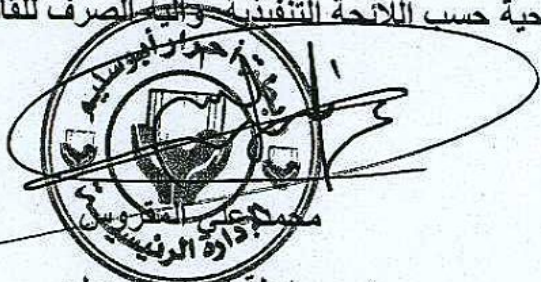 حية حسب اللائحة التنفيذية وآلية الصرف للقا
أحرار أبوسليم
محمد علي المقروس
الإدارة الرئيسية